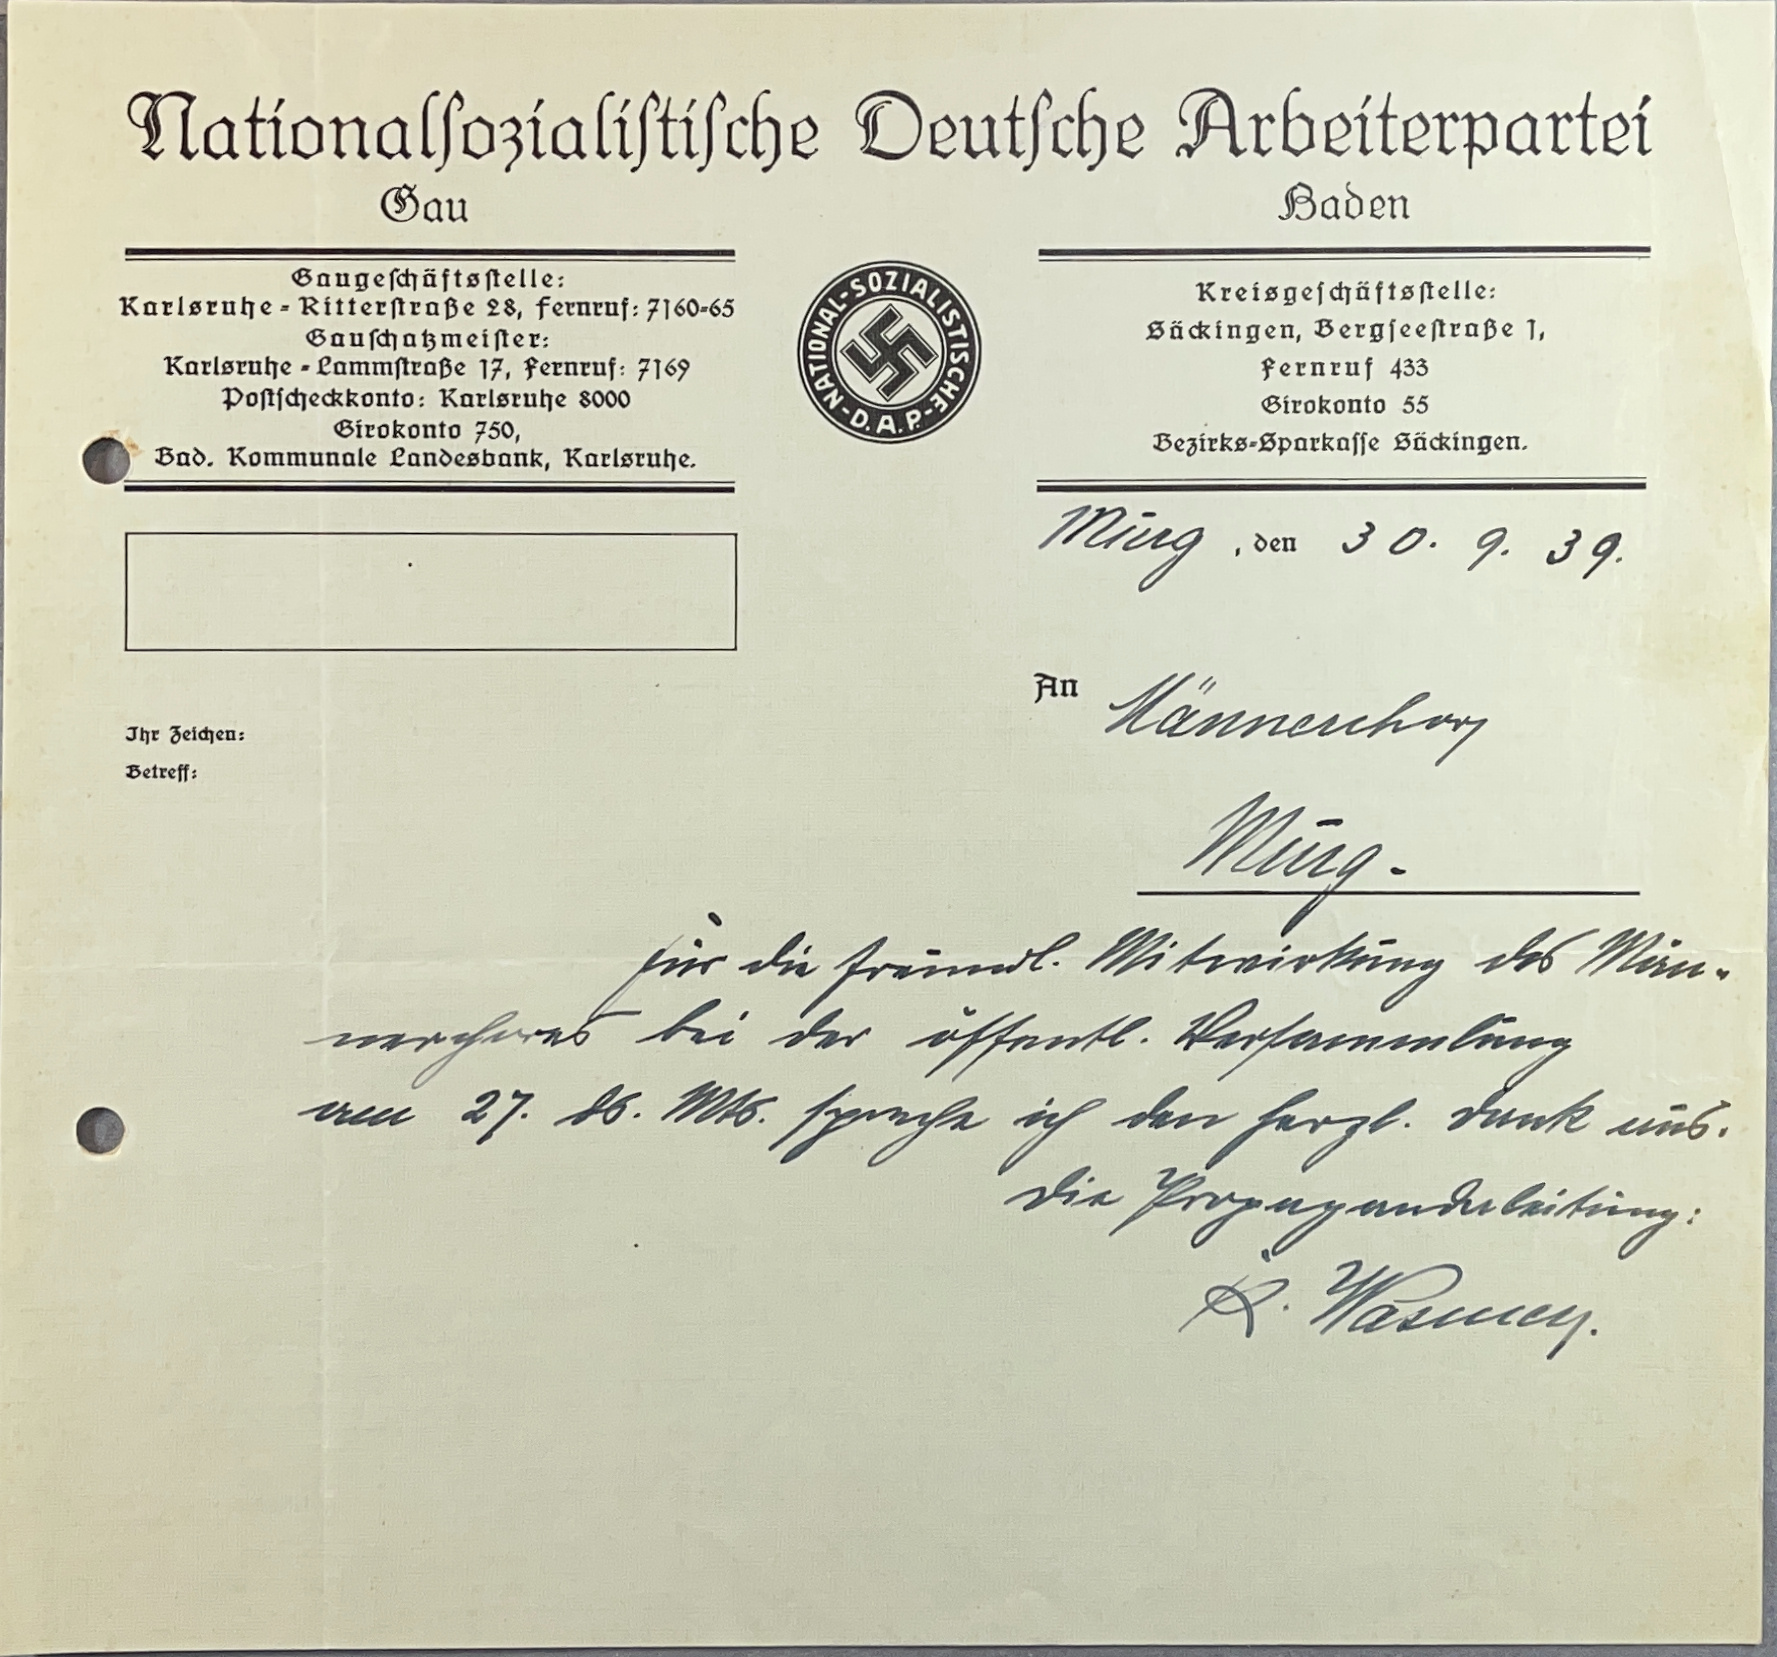 Nationalsozialistische Deutsche Arbeiterpartei
Gau
Baden
Gaugeschäftsstelle:
Karlsruhe - Ritterstraße 28, Fernruf: 7160-65
Gauschatzmeister:
Karlsruhe - Lammstraße 17, Fernruf: 7169
Postscheckkonto: Karlsruhe 8000
Girokonto 750,
Bad. Kommunale Landesbank, Karlsruhe.
NATIONAL-SOZIALISTISCHE-D.A.P.-
Kreisgeschäftsstelle:
Säckingen, Bergseestraße 1,
Fernruf 433
Girokonto 55
Bezirks-Sparkasse Säckingen.
Murg, den 30. 9. 39.
An Männerchor
Murg.
Ihr Zeichen:
Betreff:
Für die freundl. Mitwirkung des Män-
nerchores bei der öffentl. Versammlung
am 27. ds. Mts. spreche ich den herzl. Dank aus.
Die Propagandaleitung:
K. Wasmer.